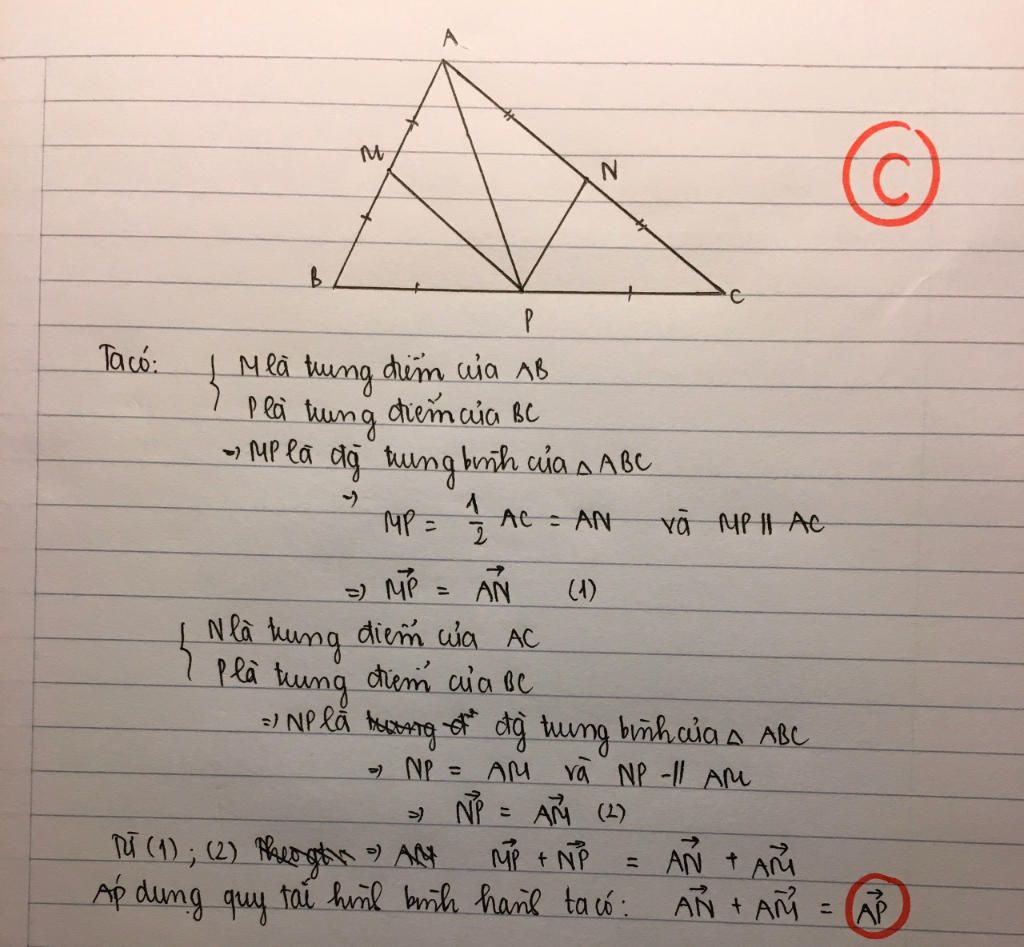 A
M
N
C
B
P
C
Ta có: { M là trung điểm của AB
P là trung điểm của BC
⇒ MP là đg̀ trung bình của △ ABC
⇒
MP = 1/2 AC = AN và MP // AC
⇒ M͢P = A͢N (1)
{ N là trung điểm của AC
P là trung điểm của BC
⇒ NP là đg̀ trung bình của △ ABC
⇒ NP = AM và NP // AM
⇒ N͢P = A͢M (2)
Từ (1) ; (2) ⇒ M͢P + N͢P = A͢N + A͢M
Áp dụng quy tắc hình bình hành ta có: A͢N + A͢M = A͢P